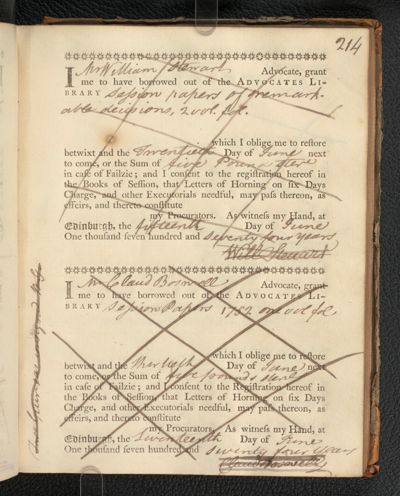 214
I Mr William Stewart Advocate, grant
me to have borrowed out of the ADVOCATES LI-
BRARY Session papers of remark-
able decisions, 2 vol. fol.
which I oblige me to restore
betwixt and the Twentieth Day of June next
to come, or the Sum of five Pound Ster
in case of Failzie; and I consent to the registration hereof in
the Books of Session, that Letters of Horning on six Days
Charge, and other Executorials needful, may pass thereon, as
effeirs, and thereto constitute
my Procurators. As witness my Hand, at
Edinburgh, the fifteenth Day of June
One thousand seven hundred and Seventy four years
Will Stewart
I Mr Claud Boswell Advocate, grant
me to have borrowed out of the ADVOCATES LI-
BRARY Session Papers 1752 one vol fol
which I oblige me to restore
betwixt and the Day of June next
to come, or the Sum of five pound Ster
in case of Failzie; and I consent to the Registration hereof in
the Books of Session, that Letters of Horning on six Days
Charge, and other Executorials needful, may pass thereon, as
effeirs, and thereto constitute
my Procurators. As witness my Hand, at
Edinburgh, the Seventeenth Day of June
One thousand seven hundred and Seventy four Years
Claud Boswell